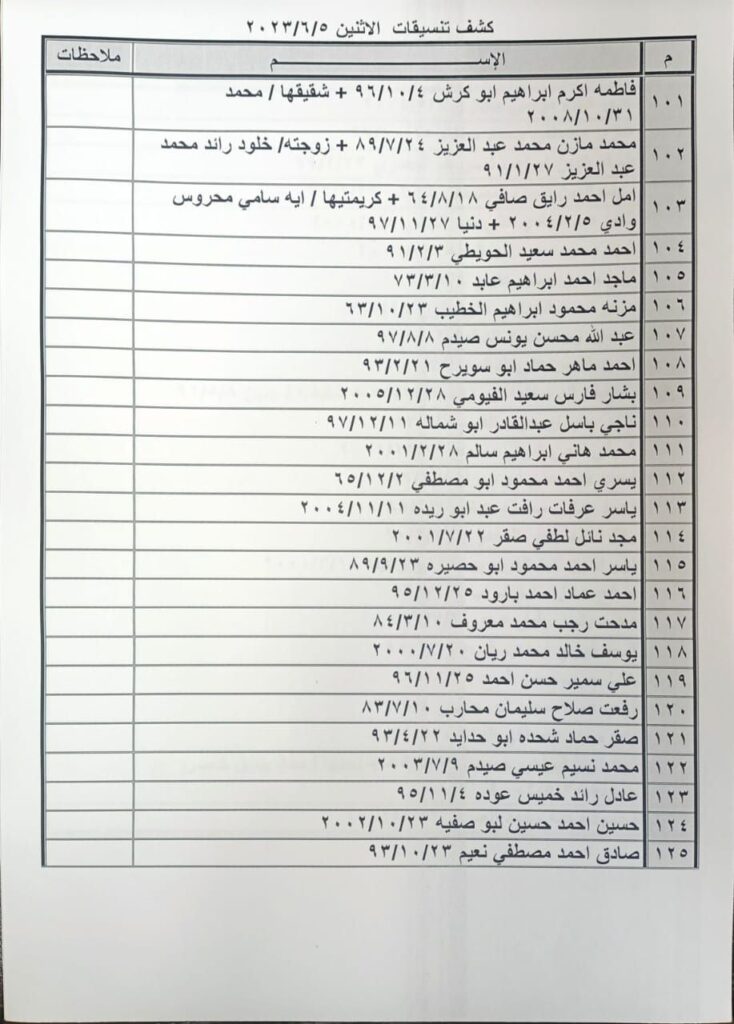 كشف تنسيقات الاثنين ٢٠٢٣/٦/٥
م الإســــــــم ملاحظات
١٠١ فاطمه اكرم ابراهيم ابو كرش ٩٦/١٠/٤ + شقيقها / محمد
٢٠٠٨/١٠/٣١
١٠٢ محمد مازن محمد عبد العزيز ٨٩/٧/٢٤ + زوجته/ خلود رائد محمد
عبد العزيز ٩١/١/٢٧
١٠٣ امل احمد رايق صافي ٦٤/٨/١٨ + كريمتيها / ايه سامي محروس
وادي ٢٠٠٤/٢/٥ + دنيا ٩٧/١١/٢٧
١٠٤ احمد محمد سعيد الحويطي ٩١/٢/٣
١٠٥ ماجد احمد ابراهيم عابد ٧٣/٣/١٠
١٠٦ مزنه محمود ابراهيم الخطيب ٦٣/١٠/٢٣
١٠٧ عبد الله محسن يونس صيدم ٩٧/٨/٨
١٠٨ احمد ماهر حماد ابو سويرح ٩٣/٢/٢١
١٠٩ بشار فارس سعيد الفيومي ٢٠٠٥/١٢/٢٨
١١٠ ناجي باسل عبدالقادر ابو شماله ٩٧/١٢/١١
١١١ محمد هاني ابراهيم سالم ٢٠٠١/٢/٢٨
١١٢ يسري احمد محمود ابو مصطفي ٦٥/١٢/٢
١١٣ ياسر عرفات رافت عبد ابو ريده ٢٠٠٤/١١/١١
١١٤ مجد نائل لطفي صقر ٢٠٠١/٧/٢٢
١١٥ ياسر احمد محمود ابو حصيره ٨٩/٩/٢٣
١١٦ احمد عماد احمد بارود ٩٥/١٢/٢٥
١١٧ مدحت رجب محمد معروف ٨٤/٣/١٠
١١٨ يوسف خالد محمد ريان ٢٠٠٠/٧/٢٠
١١٩ علي سمير حسن احمد ٩٦/١١/٢٥
١٢٠ رفعت صلاح سليمان محارب ٨٣/٧/١٠
١٢١ صقر حماد شحده ابو حدايد ٩٣/٤/٢٢
١٢٢ محمد نسيم عيسي صيدم ٢٠٠٣/٧/٩
١٢٣ عادل رائد خميس عوده ٩٥/١١/٤
١٢٤ حسين احمد حسين لبو صفيه ٢٠٠٢/١٠/٢٣
١٢٥ صادق احمد مصطفي نعيم ٩٣/١٠/٢٣